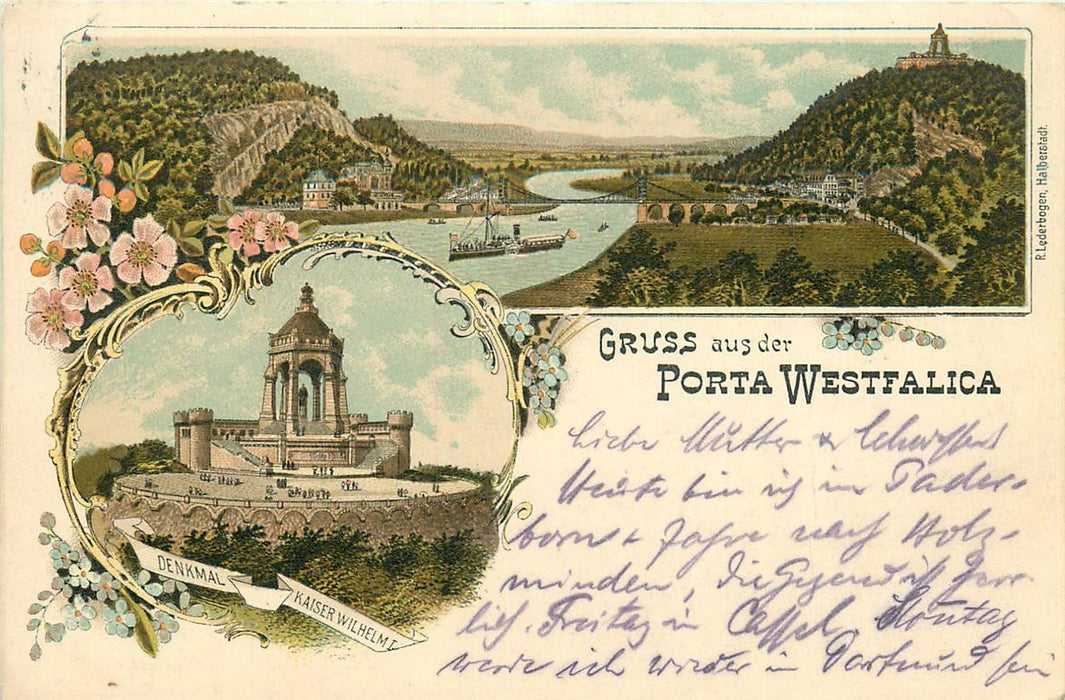 GRUSS aus der
PORTA WESTFALICA
R. Lederbogen, Halberstadt.
DENKMAL
KAISER WILHELM I.
Liebe Mutter &
Heute bin ich in Pader-
born & fahre nach Holz-
minden, die Gegend ist herr-
lich. Freitag in Cassel, Sonntag
werde ich wieder in Dortmund sein